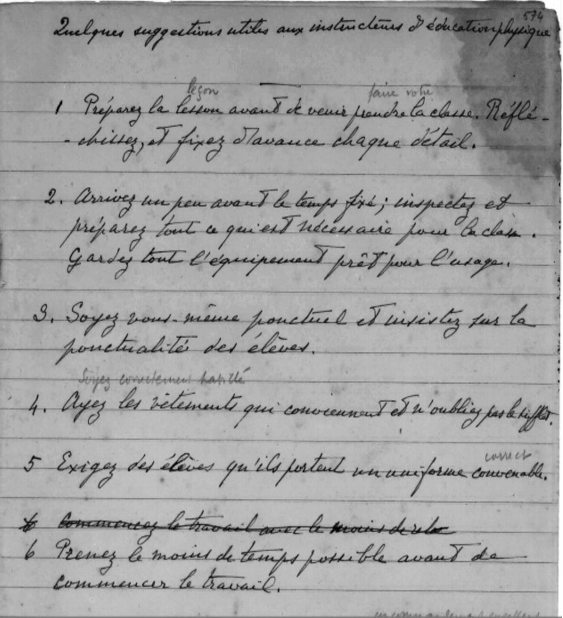 574
Quelques suggestions utiles aux instructeurs d'éducation physique
leçon faire votre
1 Préparez la lesson avant de venir prendre la classe. Réflé-
-chissez, et fixez d'avance chaque détail.
2. Arrivez un peu avant le temps fixé; inspectez et
préparez tout ce qui est nécessaire pour la classe.
Gardez tout l'équipement prêt pour l'usage.
3. Soyez vous-même ponctuel et insistez sur la
ponctualité des élèves.
Soyez correctement habillé
4. Ayez les vêtements qui conviennent et n'oubliez pas le sifflet.
correct
5 Exigez des élèves qu'ils portent un uniforme convenable.
6 Commencez le travail avec le moins de
6 Prenez le moins de temps possible avant de
commencer le travail.